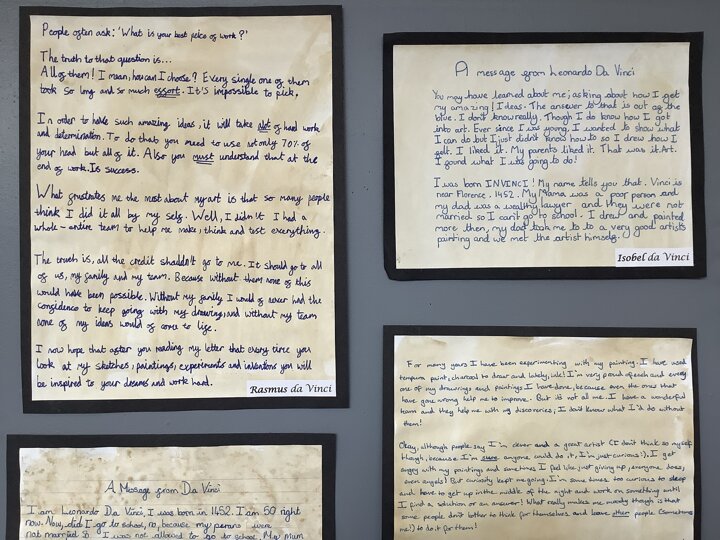 People often ask: 'What is your best peice of work?'
The truth to that question is...
All of them! I mean, how can I choose? Every single one of them
took so long and so much essort. It's impossible to pick.
In order to have such amazing ideas, it will take alot of hard work
and determination. To do that you need to use not only 70% of
your head but all of it. Also you must understand that at the
end of work. Is success.
What frustrates me the most about my art is that so many people
think I did it all by my self. Well, I didn't I had a
whole-entire team to help me make, think and test everything.
The truth is, all the credit shouldn't go to me. It should go to all
of us, my family and my team. Because without them none of this
would have been possible. Without my family I would of never had the
confidence to keep going with my drawing, and without my team
none of my ideas would of come to life.
I now hope that after you reading my letter that every time you
look at my sketches, paintings, experiments and inventions you will
be inspired to your dreams and work hard.
Rasmus da Vinci
A message from Leonardo Da Vinci
You may have learned about me; asking about how I get
my amazing! Ideas. The answer to that is out of the
blue. I don't know really. Though I do know how I got
into art. Ever since I was young, I wanted to show what
I can do but I just didn't know how to so I drew how I
felt. I liked it. My parents liked it. That was it. Art.
I found what I was going to do!
I was born INVINCI! My name tells you that. Vinci is
near Florence. 1452. My Mama was a poor person and
my dad was a wealthy lawyer and they were not
married so I can't go to school. I drew and painted
more then, my dad took me to to a very good artists
painting and we met the artist himself.
Isobel da Vinci
For many years I have been experimenting with my painting. I have used
tempura paint, charcoal to draw and lately, ink! I'm very proud of each and every
one of my drawings and paintings I have done, because even the ones that
have gone wrong help me to improve. But it's not all me. I have a wonderful
team and they help me with my discoveries; I don't know what I'd do without
them!
Okay, although people say I'm clever and a great artist (I don't think so myself
though, because I'm sure anyone could do it, I'm just curious :). I get
soggy with my paintings and sometimes I feel like just giving up, everyone does,
even angels! But curiosity kept me going. I'm some times too curious to sleep
and have to get up in the middle of the night and work on something until
I find a solution or an answer! What really makes me moody though is that
some people don't bother to think for themselves and leave other people (sometimes
me!) to do it for them!
A Message from Da Vinci
I am Leonardo Da Vinci, I was born in 1452. I am 50 right
now. Now, did I go to school, no, because my perans were
not married & I was not allowed to go to school. My mum